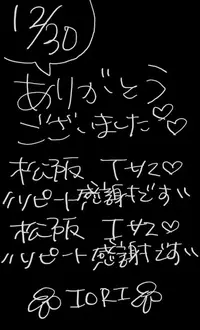 12/30
ありがとう
ございました♡♡
松阪 Tサマ♡
〃リピート感謝です〃
松阪 Tサマ♡
〃リピート感謝です〃
IORI